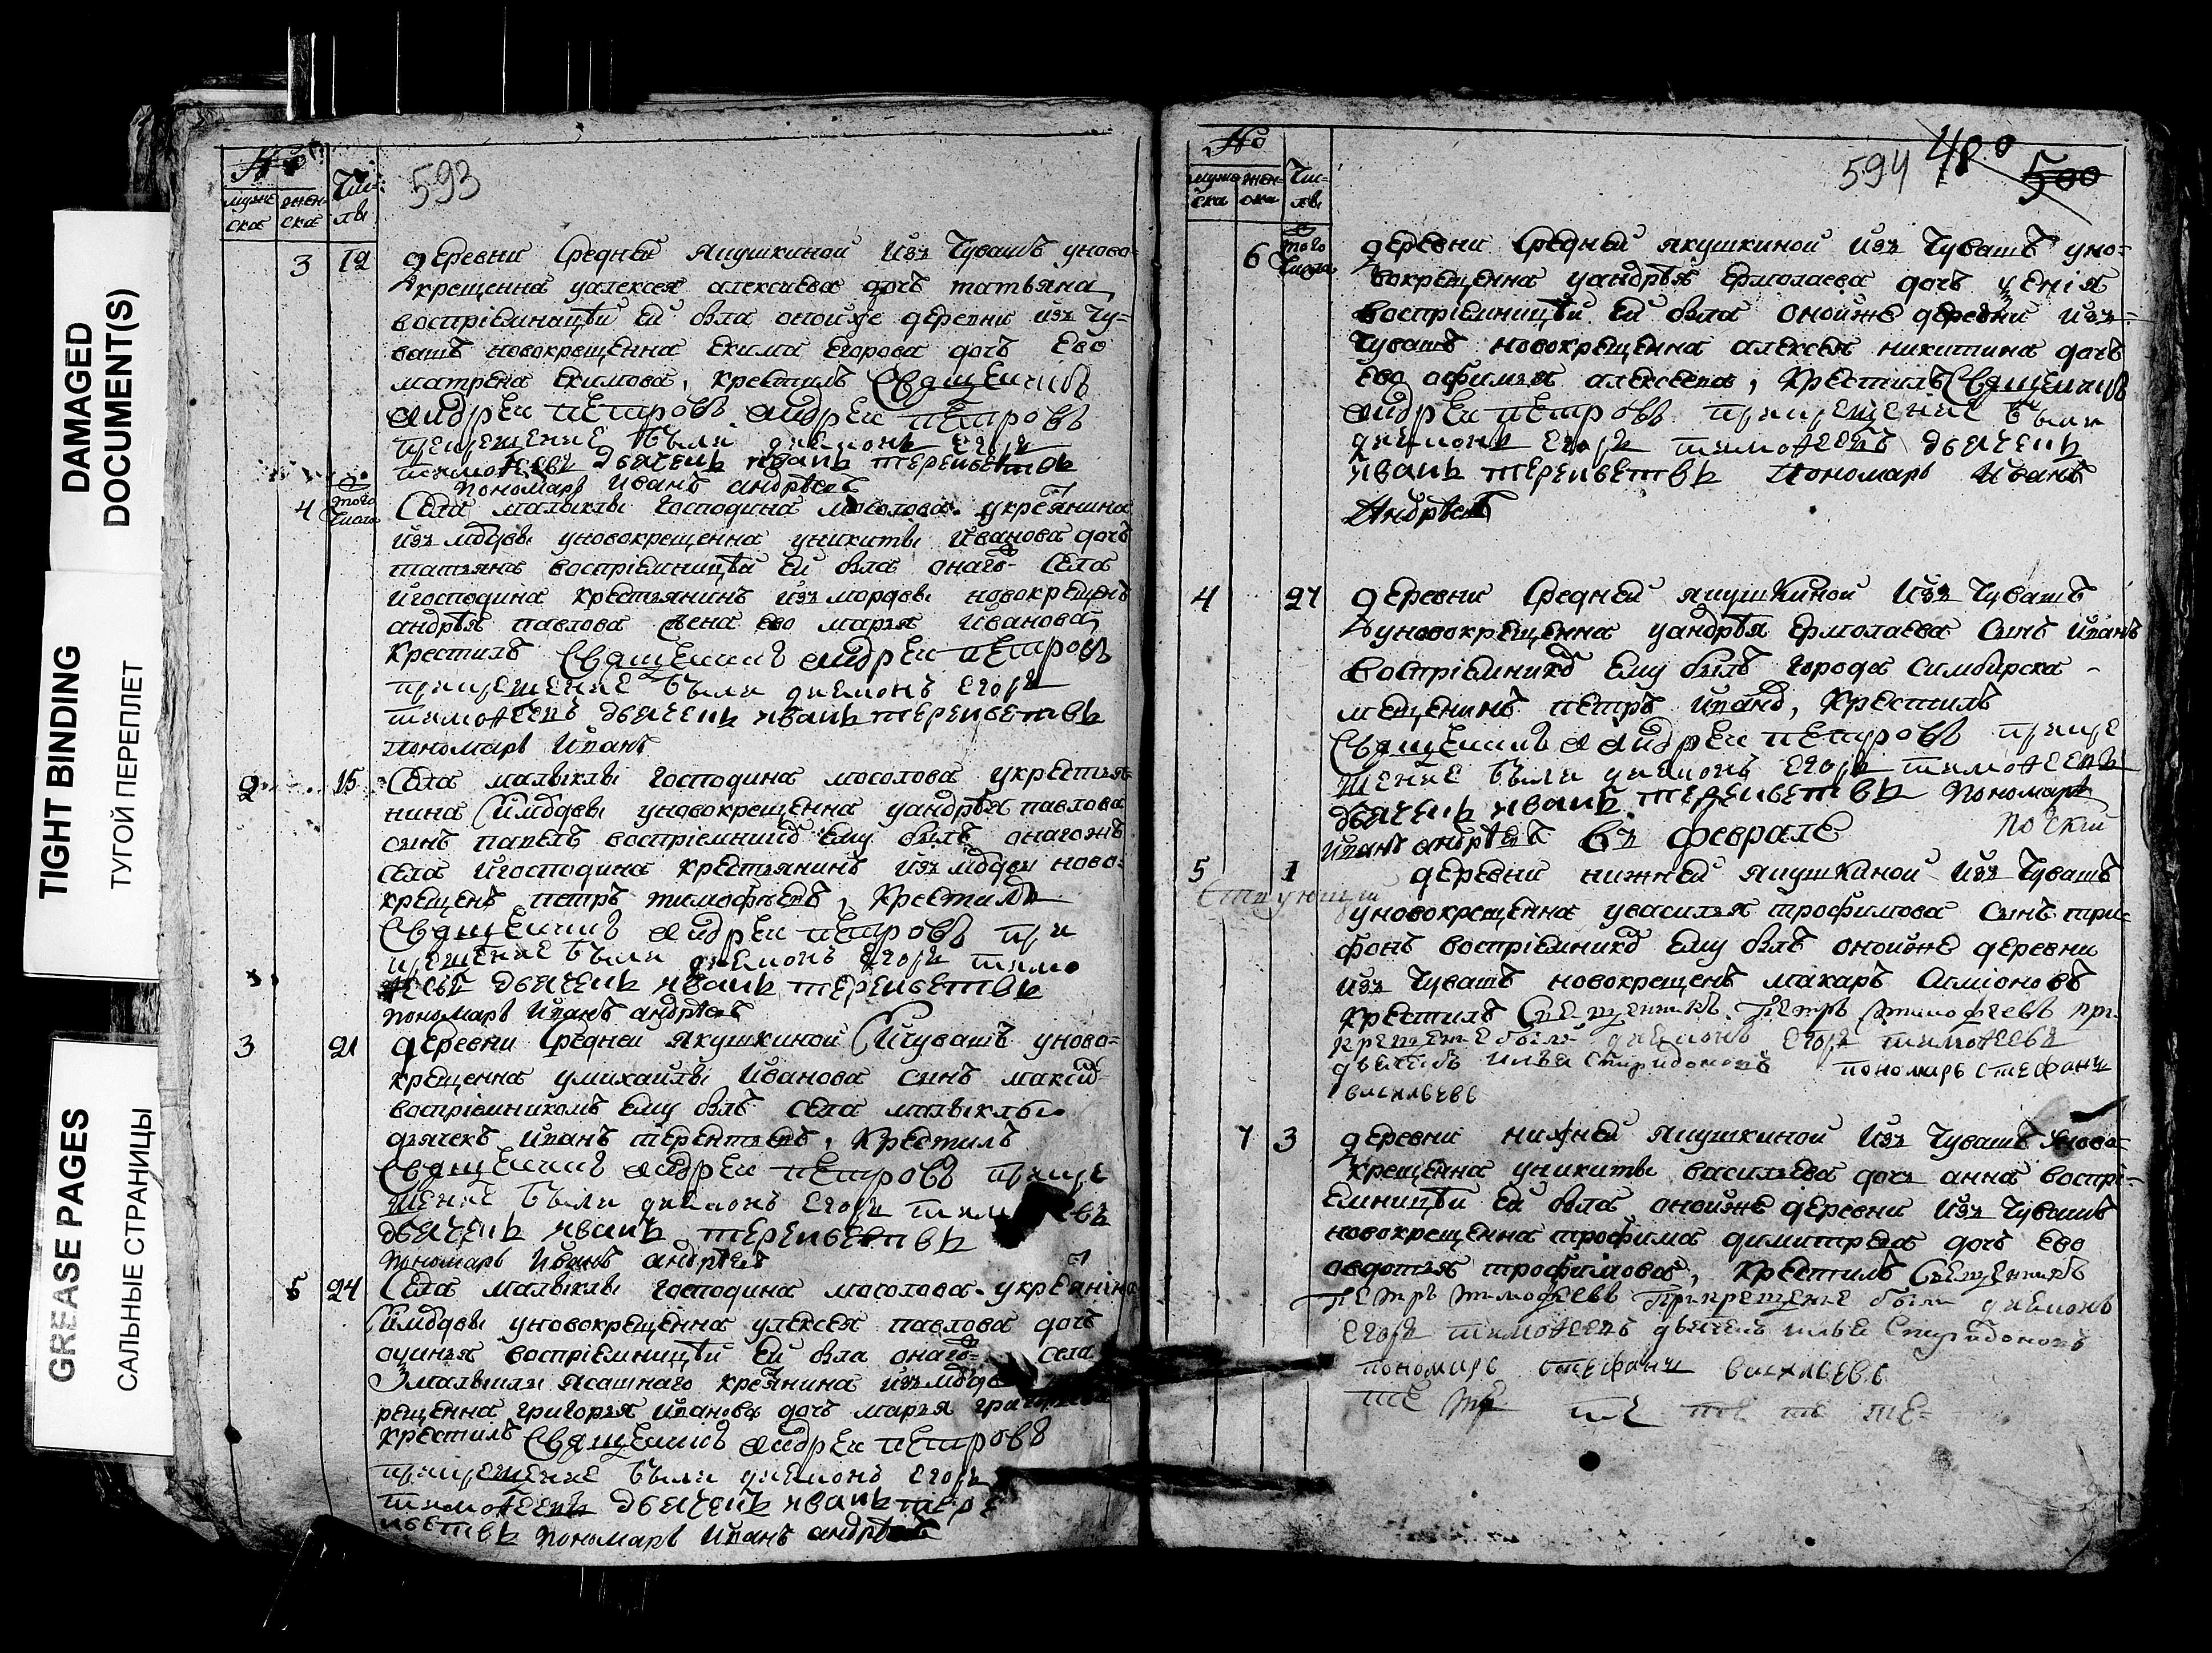 DAMAGED
DOCUMENT(S)
TIGHT BINDING
ТУГОЙ ПЕРЕПЛЕТ
GREASE PAGES
САЛЬНЫЕ СТРАНИЦЫ
593
муже
ска
жен
ска
Чис-
лы
3 12 деревни Средней якушкиной изъ Чувашъ уново-
крещенна уалексея алексиева дочь татьяна
воспрiемницеи еи была оноиже деревни изъ чу-
вашъ новокрещенна екима егорова дочь ево
матрена екимова, крестилъ Священникъ
андреи петровъ андреи петровъ
при крещение были диаконъ егоръ
тимофеевъ дьячекъ иванъ терентьевъ
пономарь иванъ андрѣевъ
4 того числа Села малыклы господина мосолова укрестянина
изъ мордвы уновокрещенна уникиты иванова дочь
татьяна воспрiемницеи еи была онаго села
игосподина крестьянинъ изъ мордвы новокрещенъ
андрѣя павлова жена ево марья иванова
крестилъ Священникъ андреи петровъ
при крещение были диаконъ егоръ
тимофеевъ дьячекъ иванъ терентьевъ
пономарь иванъ
2 15 Села малыклы господина мосолова укрестья-
нина измордвы уновокрещенна уандрѣя павлова
сынъ павелъ воспрiемникомъ ему былъ онагожъ
села игосподина крестьянинъ изъ мордвы ново-
крещенъ петръ тимофѣевъ, крестилъ
Священникъ андреи петровъ при
крещение были диаконъ егоръ тимо
феевъ дьячекъ иванъ терентьевъ
пономарь иванъ андрѣевъ
3 21 деревни Средней якушкиной изчувашъ уново-
крещенна умихаилы иванова сынъ максимъ
воспрiемникомъ ему былъ села малыклы
дьячекъ иванъ терентьевъ, крестилъ
Священникъ андреи петровъ при кре
щение были диаконъ егоръ
дьячекъ иванъ терентьевъ
пономарь иванъ андрѣевъ
5 24 Села малыклы господина мосолова укрестянина
измордвы уновокрещенна улексея павлова дочь
воспрiемницеи еи была онаго села
малыклы ясашнаго крестянина изъ
рещенна григорья иванова дочь марья
крестилъ Священникъ андреи петровъ
при крещение были диаконъ егоръ
тимофеевъ дьячекъ иванъ тере
нтьевъ пономарь иванъ андрѣевъ
594 400 500
муже
ска
жен
ска
Чис-
лы
6 того числа деревни Средней якушкиной изъ Чувашъ уно-
вокрещенна уандрѣя ермолаева дочь
воспрiемницеи еи была оноиже деревни изъ
Чувашъ новокрещенна алексея никитина дочь
ево офимья алексеева, крестилъ Священникъ
андреи петровъ при крещение были
диаконъ егоръ тимофеевъ дьячекъ
иванъ терентьевъ пономарь иванъ
андрѣевъ
4 27 деревни Средней якушкиной изъ Чувашъ
уновокрещенна уандрѣя ермолаева сынъ иванъ
воспрiемникомъ ему былъ города симбирска
мещенинъ петръ ивановъ, крестилъ
Священникъ андреи петровъ при кре
щение были диаконъ егоръ тимофеевъ
дьячекъ иванъ терентьевъ пономарь
иванъ андрѣевъ въ феврале
5 1 деревни нижней якушкиной изъ Чувашъ
уновокрещенна увасилья трофимова сынъ три-
фонъ воспрiемникомъ ему былъ оноиже деревни
изъ Чувашъ новокрещенъ макаръ симiоновъ
крестилъ Священникъ Петръ тимофеевъ при
крещение были диаконъ егоръ тимофеевъ
дьячекъ илья спиридоновъ пономарь стефанъ
васильевъ
7 3 деревни нижней якушкиной изъ Чувашъ уново-
крещенна уникиты васильева дочь анна воспрi-
емницеи еи была оноиже деревни изъ Чувашъ
новокрещенна трофима димитрева дочь ево
авдотья трофимова, крестилъ Священникъ
Петръ тимофеевъ при крещение были диаконъ
егоръ тимофеевъ дьячекъ илья спиридоновъ
пономарь стефанъ васильевъ